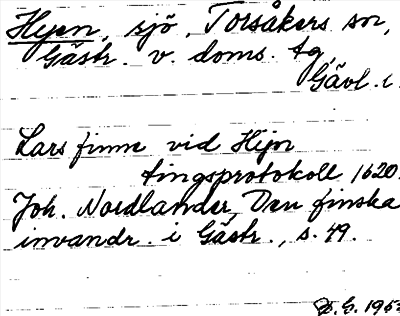 Hyen, sjö, Torsåkers sn,
Gästr. v. doms. tg,
Gävl. l.
Lars finne vid Hijn
tingsprotokoll 1620.
Joh. Nordlander, Den finska
invandr. i Gästr., s. 49.